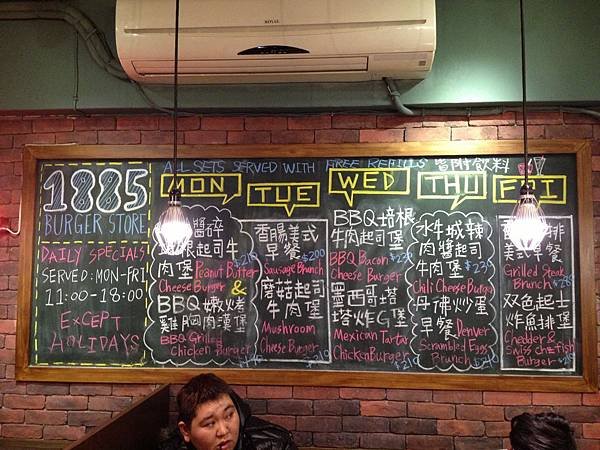 ROYAL
ALL SETS SERVED WITH FREE REFILLS 皆附飲料
1885
BURGER STORE
DAILY SPECIALS
SERVED: MON-FRI
11:00-18:00
EXCEPT
HOLIDAYS
MON
醬碎
培根起司牛
肉堡 Peanut Butter
Cheese Burger &
BBQ 嫩烤
雞胸肉漢堡
BBQ Grilled
Chicken Burger
TUE
香腸美式
早餐 $200
Sausage Brunch
蘑菇起司
牛肉堡
Mushroom
Cheese Burger
WED
BBQ培根
牛肉起司堡
BBQ Bacon
Cheese Burger
墨西哥塔
塔炸G堡
Mexican Tartar
Chicken Burger
THU
水牛城辣
肉醬起司
牛肉堡 $239
Chili Cheese Burger
丹佛炒蛋
早餐 Denver
Scrambled Eggs
Brunch
FRI
排
美式早餐
Grilled Steak
Brunch
双色起士
炸魚排堡
Chedder &
Swiss cheese fish
Burger